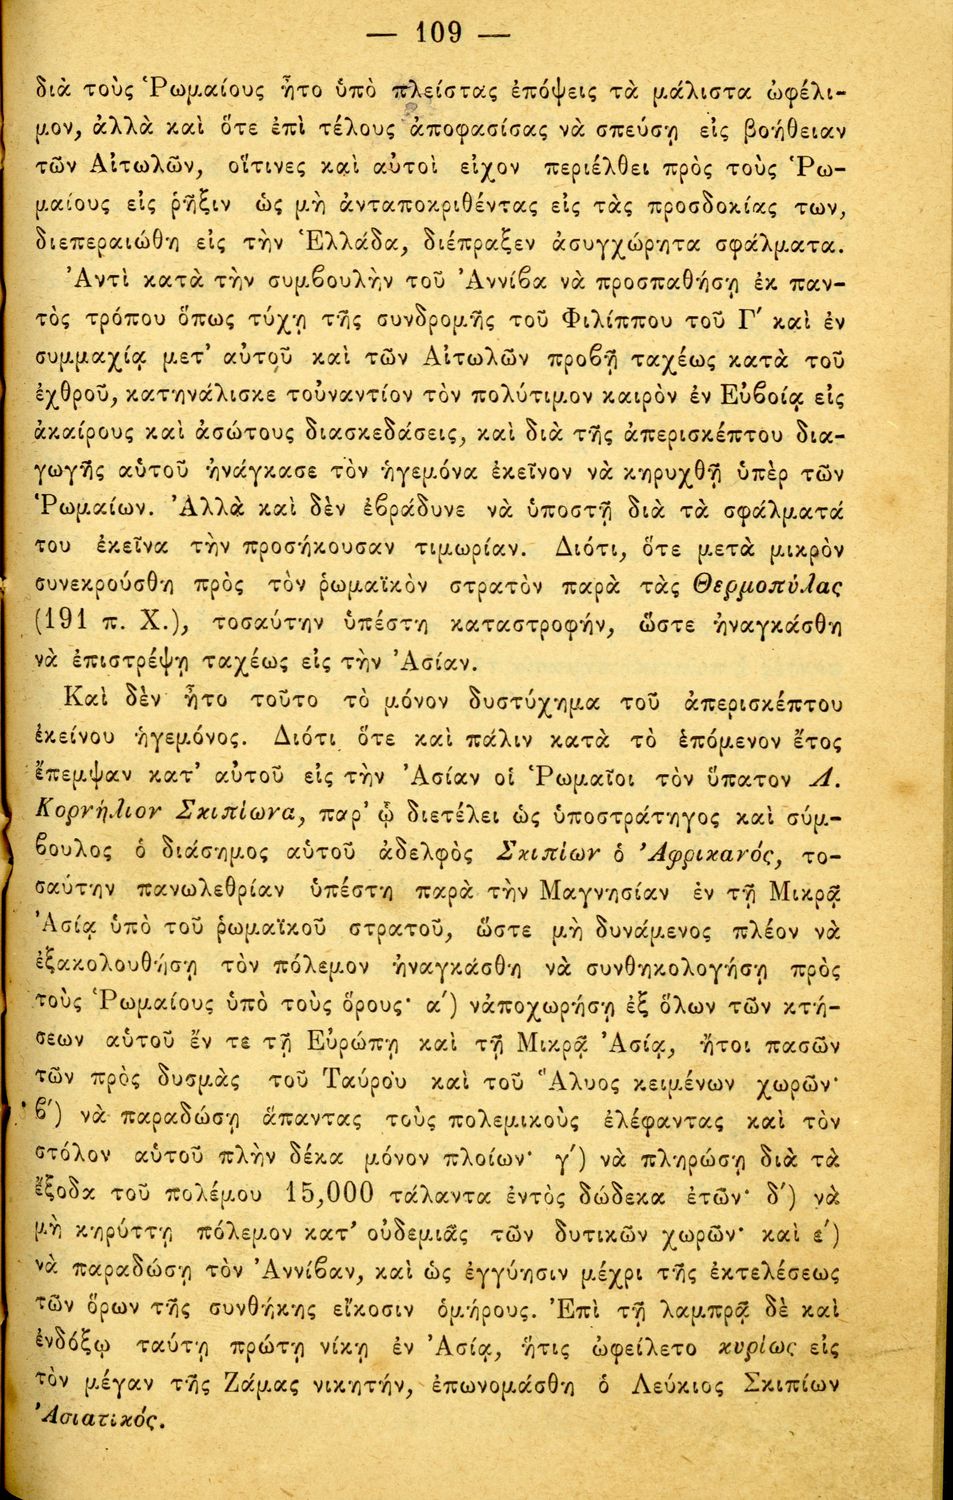 — 109 —
διὰ τοὺς Ῥωμαίους ἦτο ὑπὸ πλείστας ἐπόψεις τὰ μάλιστα ὠφέλι-
μον, ἀλλὰ καὶ ὅτε ἐπὶ τέλους ἀποφασίσας νὰ σπεύσῃ εἰς βοήθειαν
τῶν Αἰτωλῶν, οἵτινες καὶ αὐτοὶ εἶχον περιέλθει πρὸς τοὺς Ῥω-
μαίους εἰς ῥῆξιν ὡς μὴ ἀνταποκριθέντας εἰς τὰς προσδοκίας των,
διεπεραιώθη εἰς τὴν Ἑλλάδα, διέπραξεν ἀσυγχώρητα σφάλματα.
Ἀντὶ κατὰ τὴν συμβουλὴν τοῦ Ἀννίβα νὰ προσπαθήσῃ ἐκ παν-
τὸς τρόπου ὅπως τύχῃ τῆς συνδρομῆς τοῦ Φιλίππου τοῦ Γ′ καὶ ἐν
συμμαχίᾳ μετ’ αὐτοῦ καὶ τῶν Αἰτωλῶν προβῇ ταχέως κατὰ τοῦ
ἐχθροῦ, κατηνάλισκε τοὐναντίον τὸν πολύτιμον καιρὸν ἐν Εὐβοίᾳ εἰς
ἀκαίρους καὶ ἀσώτους διασκεδάσεις, καὶ διὰ τῆς ἀπερισκέπτου δια-
γωγῆς αὑτοῦ ἠνάγκασε τὸν ἡγεμόνα ἐκεῖνον νὰ κηρυχθῇ ὑπὲρ τῶν
Ῥωμαίων. Ἀλλὰ καὶ δὲν ἐβράδυνε νὰ ὑποστῇ διὰ τὰ σφάλματά
του ἐκεῖνα τὴν προσήκουσαν τιμωρίαν. Διότι, ὅτε μετὰ μικρὸν
συνεκρούσθη πρὸς τὸν ῥωμαϊκὸν στρατὸν παρὰ τὰς Θερμοπύλας
(191 π. Χ.), τοσαύτην ὑπέστη καταστροφήν, ὥστε ἠναγκάσθη
νὰ ἐπιστρέψῃ ταχέως εἰς τὴν Ἀσίαν.
Καὶ δὲν ἦτο τοῦτο τὸ μόνον δυστύχημα τοῦ ἀπερισκέπτου
ἐκείνου ἡγεμόνος. Διότι ὅτε καὶ πάλιν κατὰ τὸ ἑπόμενον ἔτος
ἔπεμψαν κατ’ αὐτοῦ εἰς τὴν Ἀσίαν οἱ Ῥωμαῖοι τὸν ὕπατον Λ.
Κορνήλιον Σκιπίωνα, παρ’ ᾧ διετέλει ὡς ὑποστράτηγος καὶ σύμ-
βουλος ὁ διάσημος αὑτοῦ ἀδελφὸς Σκιπίων ὁ Ἀφρικανός, το-
σαύτην πανωλεθρίαν ὑπέστη παρὰ τὴν Μαγνησίαν ἐν τῇ Μικρᾷ
Ἀσίᾳ ὑπὸ τοῦ ῥωμαϊκοῦ στρατοῦ, ὥστε μὴ δυνάμενος πλέον νὰ
ἐξακολουθήσῃ τὸν πόλεμον ἠναγκάσθη νὰ συνθηκολογήσῃ πρὸς
τοὺς Ῥωμαίους ὑπὸ τοὺς ὅρους· α′) νἀποχωρήσῃ ἐξ ὅλων τῶν κτή-
σεων αὑτοῦ ἔν τε τῇ Εὐρώπῃ καὶ τῇ Μικρᾷ Ἀσίᾳ, ἤτοι πασῶν
τῶν πρὸς δυσμὰς τοῦ Ταύρου καὶ τοῦ Ἅλυος κειμένων χωρῶν·
β′) νὰ παραδώσῃ ἅπαντας τοὺς πολεμικοὺς ἐλέφαντας καὶ τὸν
στόλον αὑτοῦ πλὴν δέκα μόνον πλοίων· γ′) νὰ πληρώσῃ διὰ τὰ
ἔξοδα τοῦ πολέμου 15,000 τάλαντα ἐντὸς δώδεκα ἐτῶν· δ′) νὰ
μὴ κηρύττῃ πόλεμον κατ’ οὐδεμιᾶς τῶν δυτικῶν χωρῶν· καὶ ε′)
νὰ παραδώσῃ τὸν Ἀννίβαν, καὶ ὡς ἐγγύησιν μέχρι τῆς ἐκτελέσεως
τῶν ὅρων τῆς συνθήκης εἴκοσιν ὁμήρους. Ἐπὶ τῇ λαμπρᾷ δὲ καὶ
ἐνδόξῳ ταύτῃ πρώτῃ νίκῃ ἐν Ἀσίᾳ, ἥτις ὠφείλετο κυρίως εἰς
τὸν μέγαν τῆς Ζάμας νικητήν, ἐπωνομάσθη ὁ Λεύκιος Σκιπίων
Ἀσιατικός.